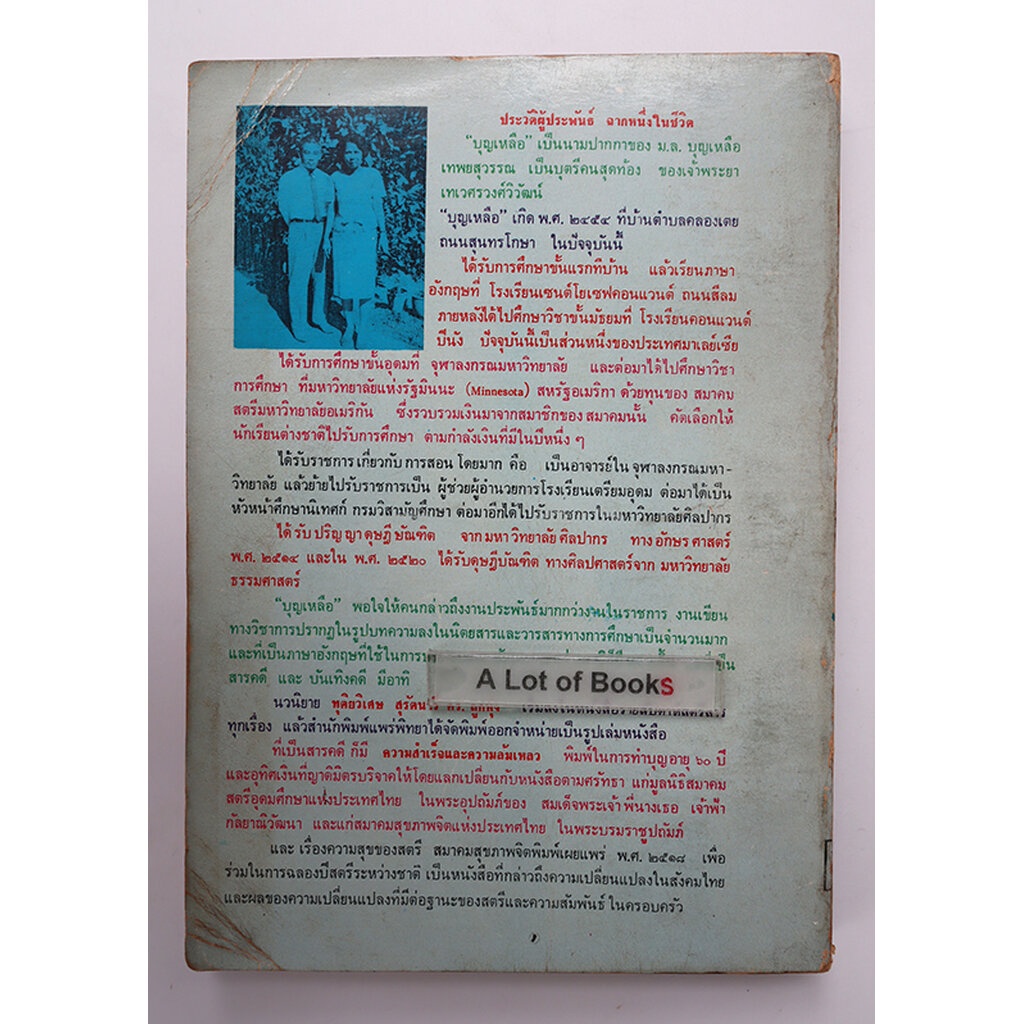 ประวัติผู้ประพันธ์ ฉากหนึ่งในชีวิต
“บุญเหลือ” เป็นนามปากกาของ ม.ล. บุญเหลือ
เทพยสุวรรณ เป็นบุตรีคนสุดท้อง ของเจ้าพระยา
เทเวศรวงศ์วิวัฒน์
“บุญเหลือ” เกิด พ.ศ. ๒๔๕๔ ที่บ้านตำบลคลองเตย
ถนนสุนทรโกษา ในปัจจุบันนี้
ได้รับการศึกษาขั้นแรกที่บ้าน แล้วเรียนภาษา
อังกฤษที่ โรงเรียนเซนต์โยเซฟคอนแวนต์ ถนนสีลม
ภายหลังได้ไปศึกษาวิชาขั้นมัธยมที่ โรงเรียนคอนแวนต์
ปีนัง ปัจจุบันนี้เป็นส่วนหนึ่งของประเทศมาเลย์เซีย
ได้รับการศึกษาขั้นอุดมที่ จุฬาลงกรณมหาวิทยาลัย และต่อมาได้ไปศึกษาวิชา
การศึกษา ที่มหาวิทยาลัยแห่งรัฐมินนะ (Minnesota) สหรัฐอเมริกา ด้วยทุนของ สมาคม
สตรีมหาวิทยาลัยอเมริกัน ซึ่งรวบรวมเงินมาจากสมาชิกของ สมาคมนั้น คัดเลือกให้
นักเรียนต่างชาติไปรับการศึกษา ตามกำลังเงินที่มีในปีหนึ่ง ๆ
ได้รับราชการ เกี่ยวกับ การสอน โดยมาก คือ เป็นอาจารย์ใน จุฬาลงกรณมหา-
วิทยาลัย แล้วย้ายไปรับราชการเป็น ผู้ช่วยผู้อำนวยการโรงเรียนเตรียมอุดม ต่อมาได้เป็น
หัวหน้าศึกษานิเทศก์ กรมวิสามัญศึกษา ต่อมาอีกได้ไปรับราชการในมหาวิทยาลัยศิลปากร
ได้ รับ ปริญ ญา ดุษฎี บัณฑิต จาก มหา วิทยาลัย ศิลปากร ทาง อักษร ศาสตร์
พ.ศ. ๒๕๑๔ และใน พ.ศ. ๒๕๒๐ ได้รับดุษฎีบัณฑิต ทางศิลปศาสตร์จาก มหาวิทยาลัย
ธรรมศาสตร์
“บุญเหลือ” พอใจให้คนกล่าวถึงงานประพันธ์มากกว่างานในราชการ งานเขียน
ทางวิชาการปรากฏในรูปบทความลงในนิตยสารและวารสารทางการศึกษาเป็นจำนวนมาก
และที่เป็นภาษาอังกฤษที่ใช้ในการ
สารคดี และ บันเทิงคดี มีอาทิ
A Lot of Books
นวนิยาย ทุติยวิเศษ
ทุกเรื่อง แล้วสำนักพิมพ์แพร่พิทยาได้จัดพิมพ์ออกจำหน่ายเป็นรูปเล่มหนังสือ
ที่เป็นสารคดี ก็มี ความสำเร็จและความล้มเหลว พิมพ์ในการทำบุญอายุ ๖๐ ปี
และอุทิศเงินที่ญาติมิตรบริจาคให้โดยแลกเปลี่ยนกับหนังสือตามศรัทธา แก่มูลนิธิสมาคม
สตรีอุดมศึกษาแห่งประเทศไทย ในพระอุปถัมภ์ของ สมเด็จพระเจ้า พี่นางเธอ เจ้าฟ้า
กัลยาณิวัฒนา และแก่สมาคมสุขภาพจิตแห่งประเทศไทย ในพระบรมราชูปถัมภ์
และ เรื่องความสุขของสตรี สมาคมสุขภาพจิตพิมพ์เผยแพร่ พ.ศ. ๒๕๑๘ เพื่อ
ร่วมในการฉลองปีสตรีระหว่างชาติ เป็นหนังสือที่กล่าวถึงความเปลี่ยนแปลงในสังคมไทย
และผลของความเปลี่ยนแปลงที่มีต่อฐานะของสตรีและความสัมพันธ์ ในครอบครัว